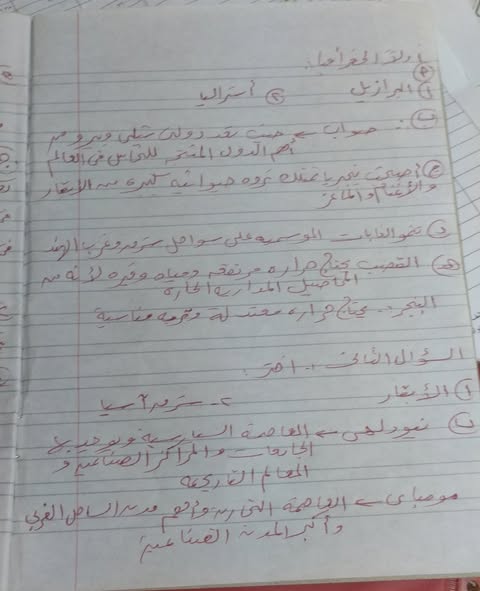 أولاً الجغرافيا:
أ
① البرازيل ② أستراليا
ب :- صواب ← حيث تعد دولتى شيلى وبيرو من
أهم الدول المنتجة للنحاس فى العالم
ج أصبحت نيجيريا تمتلك ثروة حيوانية كبيرة من الأبقار
والأغنام والماعز
د تنمو الغابات الموسمية على سواحل شرق وغرب الهند
هـ القصب يحتاج حرارة مرتفعة ومياه وفيرة لأنه من
المحاصيل المدارية الحارة
البنجر :- يحتاج حرارة معتدلة وتربة مناسبة
السؤال الثانى :- اختر :
أ الأبقار ٢- شرق آسيا
ب نيودلهى ← العاصمة السياسية ويوجد بها
الجامعات والمراكز الصناعية و
المعالم التاريخية
مومباى ← العاصمة التجارية وأهم مدن الساحل الغربى
وأكبر المدن الصناعية